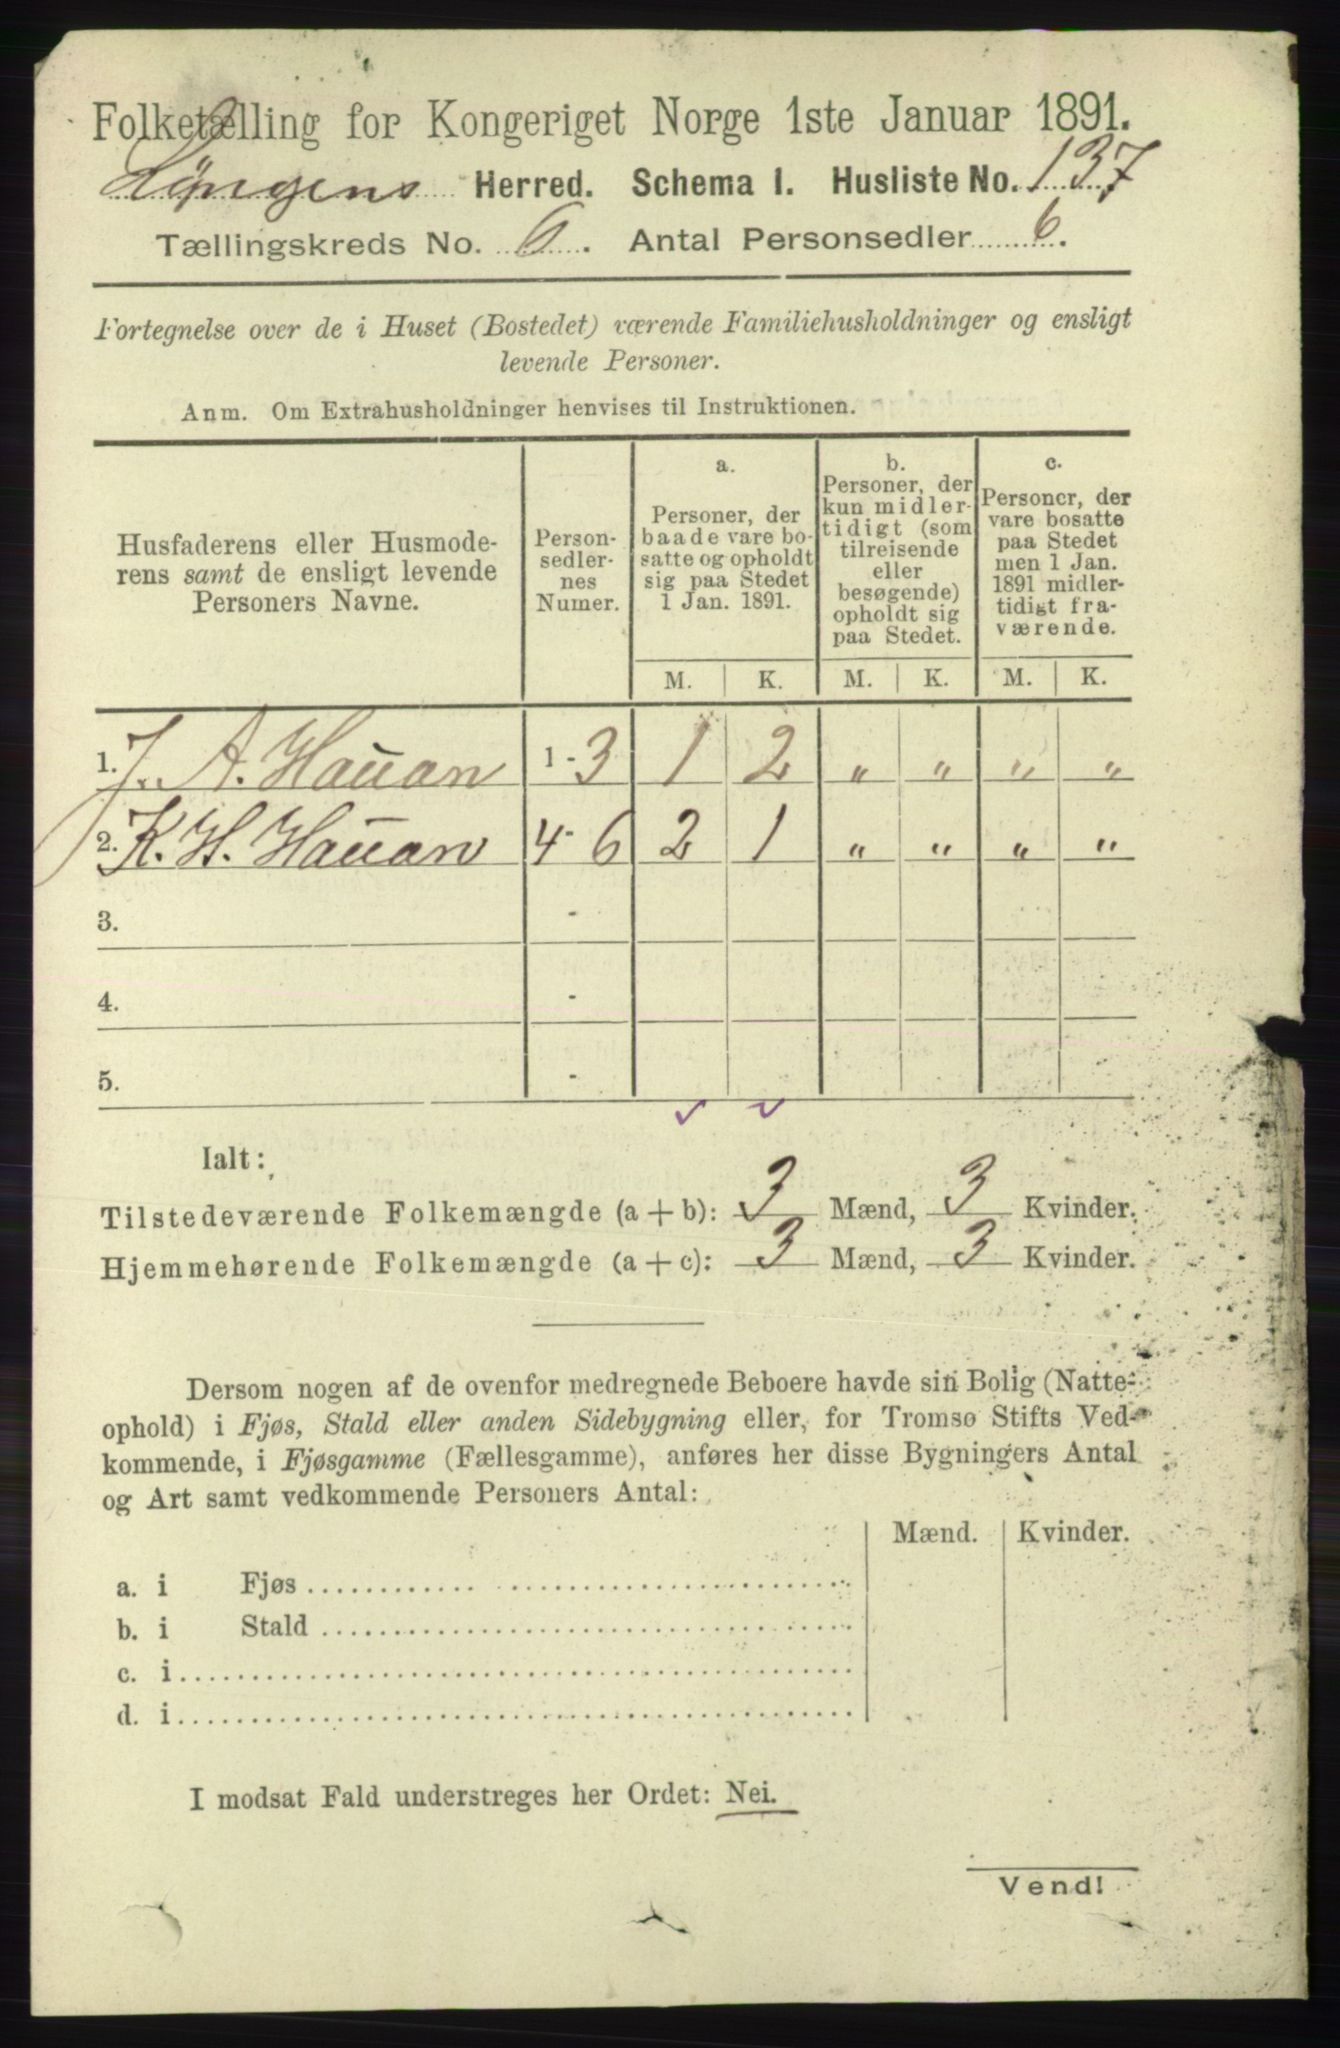 Folketælling for Kongeriget Norge 1ste Januar 1891.
Lyngens Herred. Schema I. Husliste No. 137
Tællingskreds No. 6. Antal Personsedler 6.
Fortegnelse over de i Huset (Bostedet) værende Familiehusholdninger og ensligt
levende Personer.
Anm. Om Extrahusholdninger henvises til Instruktionen.
Husfaderens eller Husmode-
rens samt de ensligt levende
Personers Navne.
Person-
sedler-
nes
Numer.
a.
Personer, der
baade vare bo-
satte og opholdt
sig paa Stedet
1 Jan. 1891.
b.
Personer, der
kun midler-
tidigt (som
tilreisende
eller
besøgende)
opholdt sig
paa Stedet.
c.
Personer, der
vare bosatte
paa Stedet
men 1 Jan.
1891 midler-
tidigt fra-
værende.
M. K. M. K. M. K.
1. J. A. Hauan 1 - 3 1 2 " " " "
2. K. H. Hauan 4 - 6 2 1 " " " "
3. -
4. -
5. -
Ialt:
Tilstedeværende Folkemængde (a + b): 3 Mænd, 3 Kvinder.
Hjemmehørende Folkemængde (a + c): 3 Mænd, 3 Kvinder.
Dersom nogen af de ovenfor medregnede Beboere havde sin Bolig (Natte-
ophold) i Fjøs, Stald eller anden Sidebygning eller, for Tromsø Stifts Ved-
kommende, i Fjøsgamme (Fællesgamme), anføres her disse Bygningers Antal
og Art samt vedkommende Personers Antal:
Mænd. Kvinder.
a. i Fjøs
b. i Stald
c. i
d. i
I modsat Fald understreges her Ordet: Nei.
Vend!